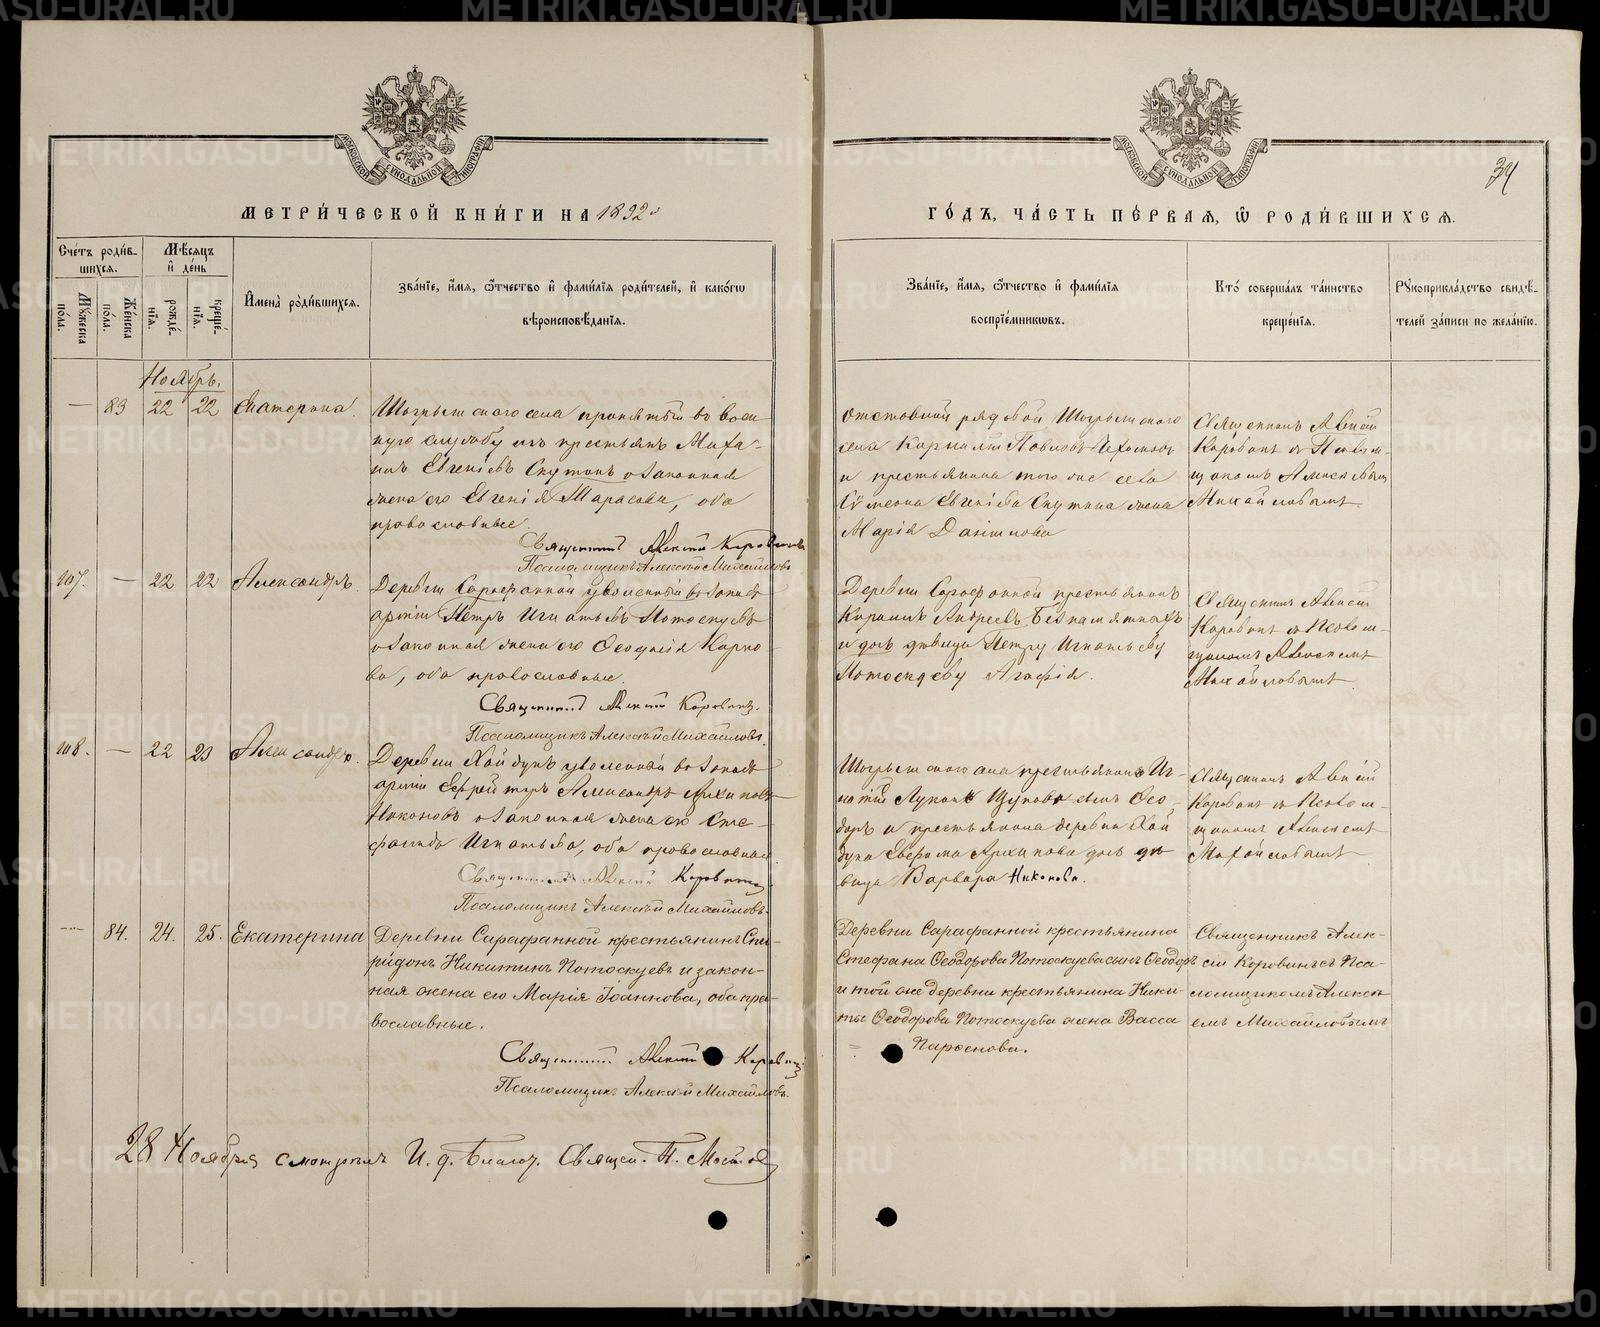 МОСКОВСКОЙ СѴНОДАЛЬНОЙ ТИПОГРАФІИ
МОСКОВСКОЙ СѴНОДАЛЬНОЙ ТИПОГРАФІИ
34
МЕТРИ́ЧЕСКОЙ КНИ́ГИ НА 1892й
ГО́ДЪ, ЧА́СТЬ ПЕ́РВАЯ, Ѽ РОДИ́ВШИХСЯ.
Сче́тъ роди́в-
шихся.
Мѣ́сяцъ
и҆ де́нь
Му́жеска по́ла.
Же́нска по́ла.
рожде́нія.
креще́нія.
И҆мена̀ роди́вшихся.
Зва́ніе, и҆́мя, ѻ҆́тчество и҆ фами́лїя роди́телей, и҆ како́гѡ
вѣроисповѣ́данїя.
Зва́нїе, и҆́мя, ѻ҆́тчество и҆ фами́лїя
воспрїе́мникѡвъ.
Кто́ соверша́лъ та́инство
креще́нїя.
Рꙋкоприкла́дство свидѣ́-
телей за́писи по жела́нїю.
Ноябрь.
— 83 22 22 Екатерина.
Шогрышскаго села принятый въ воен-
ную службу изъ крестьянъ Миха-
илъ Евгеніевъ Скутинъ и законная
жена его Евгенія Тарасова, оба
православные.
Священникъ Алексій Коровинъ
Псаломщикъ Алексѣй Михайловъ
Отставной рядовой Шогрышскаго
села Корнилій Павловъ
и крестьянина того же села
Сѵмеона Евгеніева Скутина жена
Марія Даніилова
Священникъ Алексій
Коровинъ съ Псалом-
щикомъ Алексѣемъ
Михайловымъ
107. — 22 22 Александръ.
Деревни Сарафанной уволенный въ запасъ
арміи Петръ Игнатьевъ Потоскуевъ
и законная жена его Ѳеодосія Карпо-
ва, оба православные.
Священникъ Алексій Коровинъ.
Псаломщикъ Алексѣй Михайловъ.
Деревни Сарафанной крестьянинъ
Кириллъ Андреевъ Безпамятныхъ
и дочь дѣвица Петру Игнатьеву
Потоскуеву Агафія.
Священникъ Алексій
Коровинъ съ Псалом-
щикомъ Алексѣемъ
Михайловымъ
108. — 22 23 Александръ.
Деревни Хайдукъ уволенный въ запасъ
арміи Ефрейторъ Александръ Архиповъ
Никоновъ и законная жена его Сте-
фанида Игнатьева, оба православные
Священникъ Алексій Коровинъ
Псаломщикъ Алексѣй Михайловъ.
Шогрышскаго села крестьянина Иг-
натій Лукинъ Щукова сынъ Ѳео-
доръ и крестьянина деревни Хай
дука Архипова дочь дѣ-
вица Варвара Никонова.
Священникъ Алексій
Коровинъ съ Псалом-
щикомъ Алексѣемъ
Михайловымъ
— 84. 24. 25. Екатерина
Деревни Сарафанной крестьянинъ Спи-
ридонъ Никитинъ Потоскуевъ и закон-
ная жена его Марія Іоаннова, оба пра-
вославные.
Священникъ Алексій Коровинъ
Псаломщикъ Алексѣй Михайловъ.
Деревни Сарафанной крестьянина
Стефана Ѳеодорова Потоскуева сынъ Ѳеодоръ
и той же деревни крестьянина Ники-
ты Ѳеодорова Потоскуева жена Васса
Парѳенова.
Священникъ Алек-
сій Коровинъ съ Пса-
ломщикомъ Алексѣ-
емъ Михайловымъ
28 Ноября смотрѣлъ И. д. Благоч. Священ. П.
METRIKI.GASO-URAL.RU